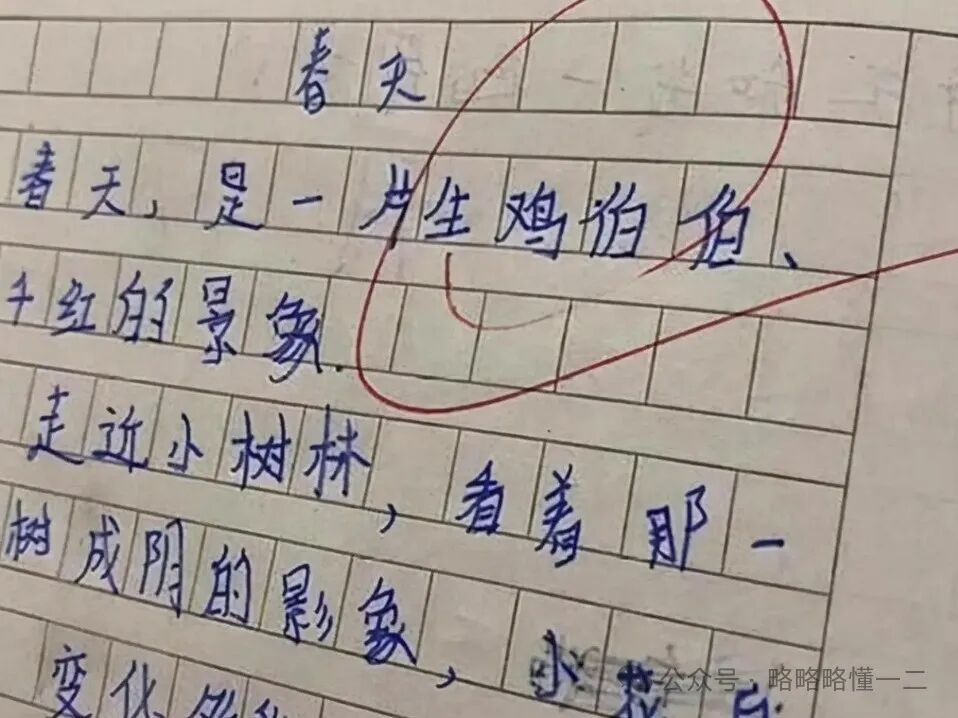 春天
春天,是一片生鸡伯伯、
千红的景象.
走近小树林,看着那一
树成阴的影象,小
变化
公众号·略略略懂一二